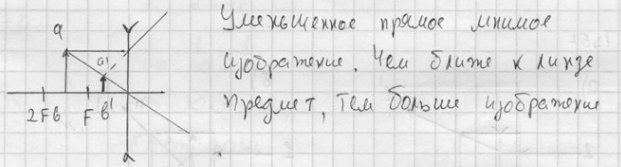 Уменьшенное прямое мнимое
изображение. Чем ближе к линзе
предмет, тем больше изображение
a
a'
2F в F в'